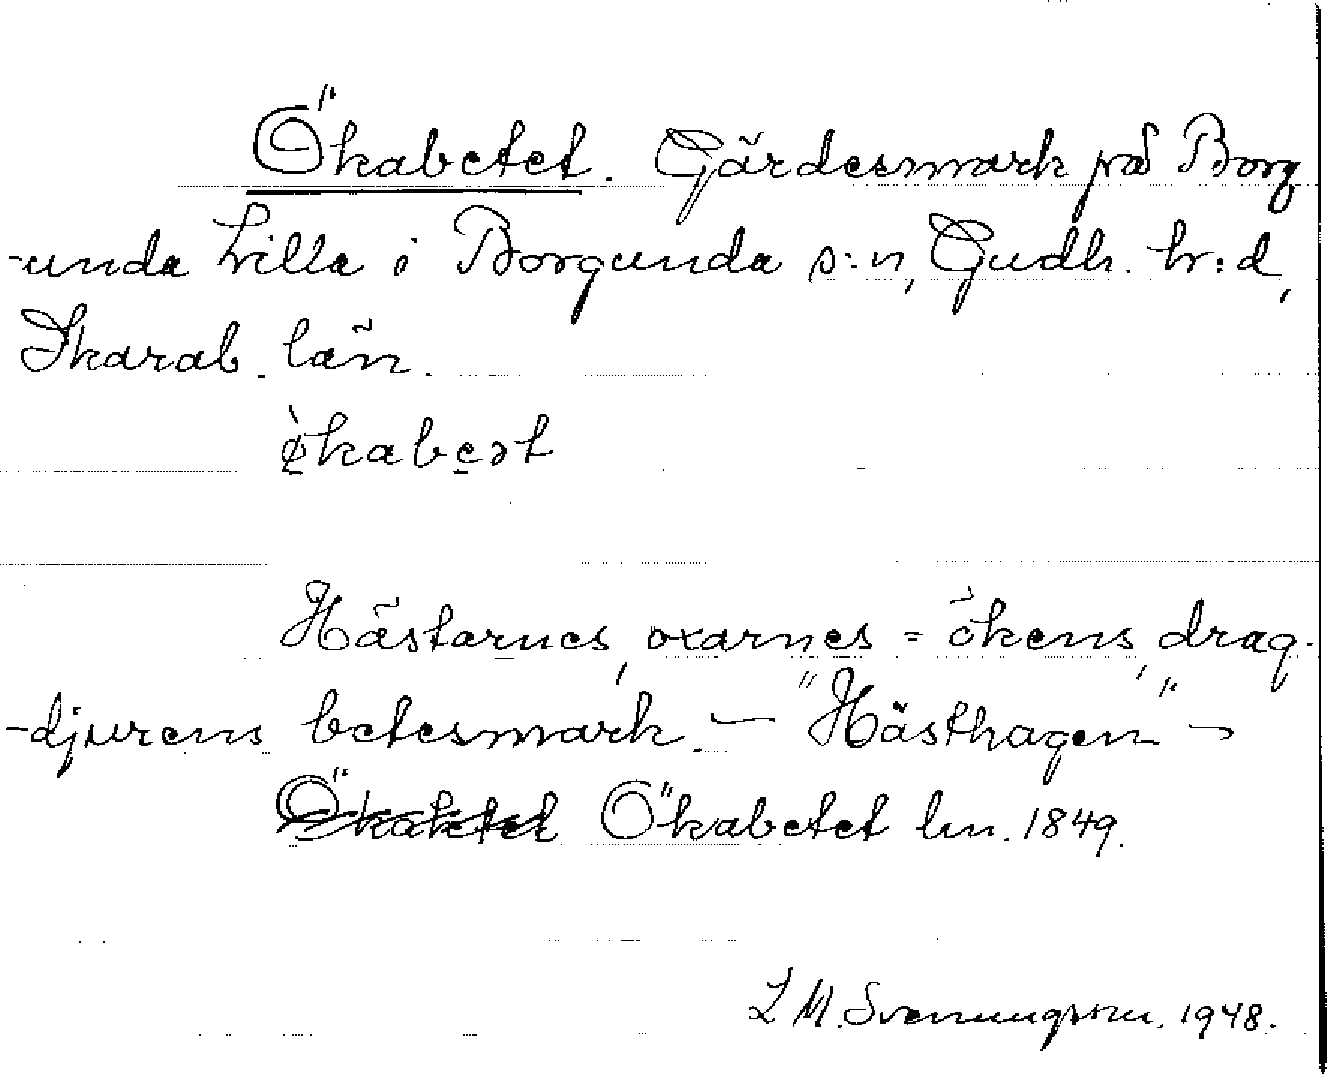 Ökabetet. Gärdesmark på Borg
-unda Lilla i Borgunda s:n, Gudh. hr:d,
Skarab. län.
ø̀kabeət
Hästarnes, oxarnes = ökens, drag-
-djurens betesmark. — "Hästhagen" —
Ökabetet Ökabetet lm. 1849.
L M. Svenungsson. 1948.